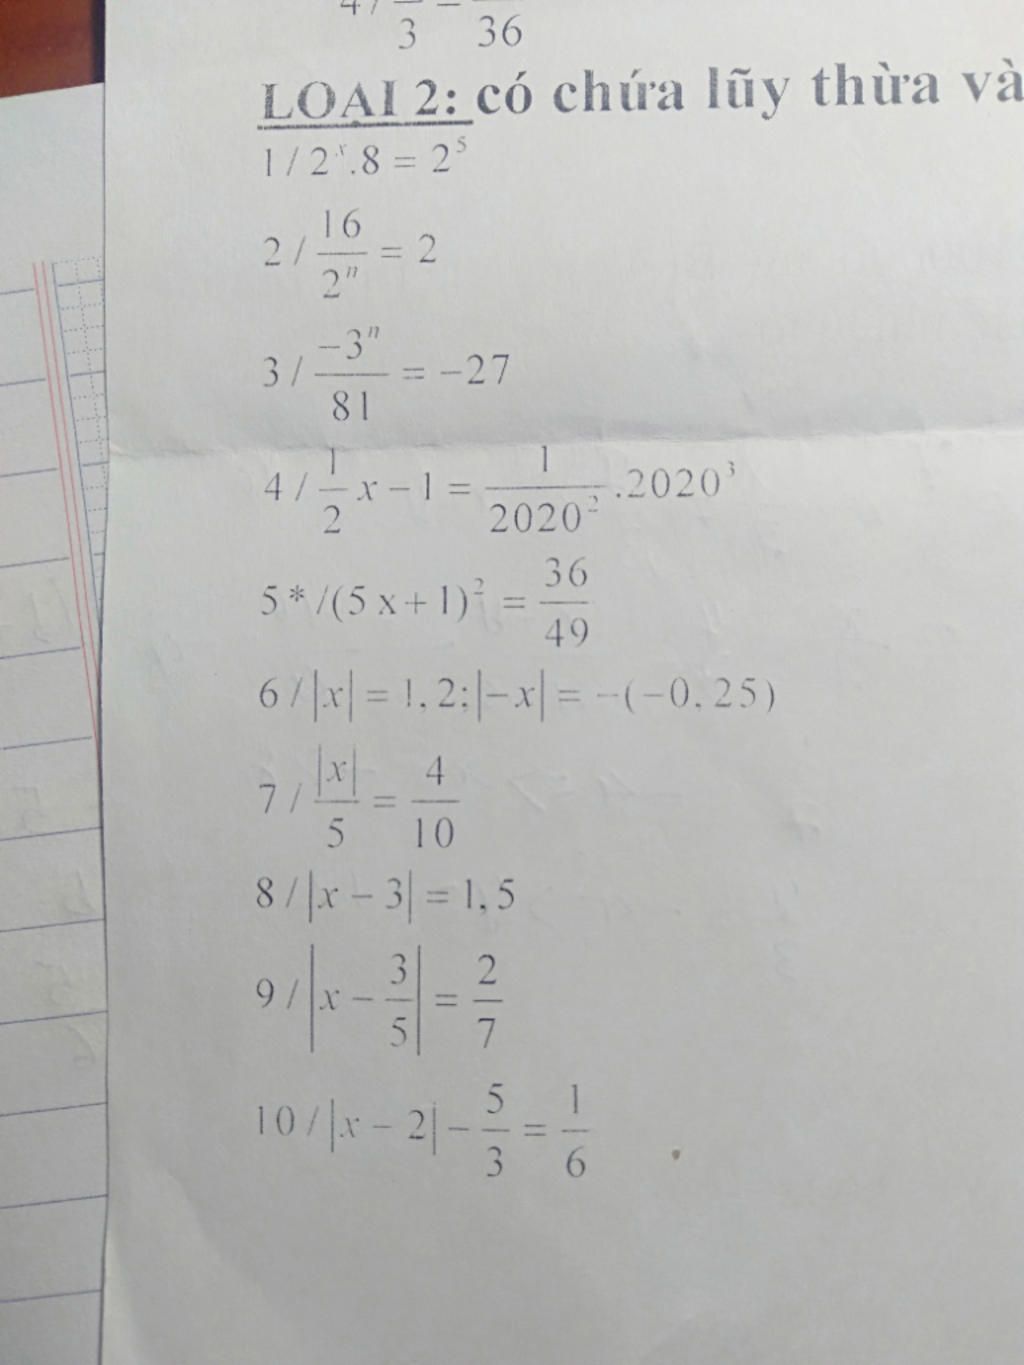 4 / /3 = /36
LOẠI 2: có chứa lũy thừa và
1 / 2^x.8 = 2^5
2 / 16/2^n = 2
3 / -3^n/81 = -27
4 / 1/2 x - 1 = 1/2020^2 .2020^3
5* /(5x+1)^2 = 36/49
6 / |x| = 1,2; |-x| = -(-0,25)
7 / |x|/5 = 4/10
8 / |x - 3| = 1,5
9 / |x - 3/5| = 2/7
10 / |x - 2| - 5/3 = 1/6